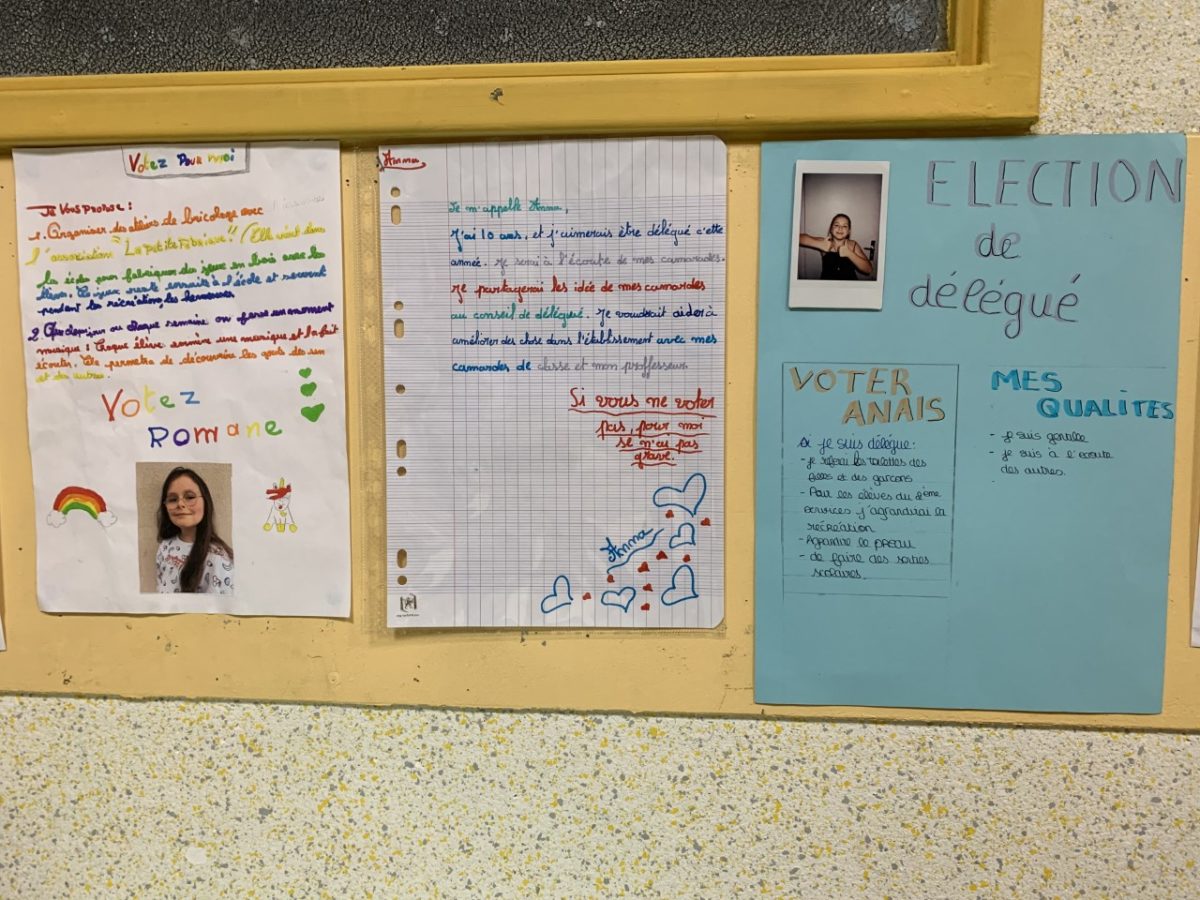 Votez Pour moi
Je vous propose :
1. Organiser des ateliers de bricolage avec
l'association "La petite Fabrique" (Elle vient dans
les écoles pour fabriquer du jeux en bois avec les
élèves. Les jeux reste ensuite à l'école et servent
pendant les récréations,
2 Chaque semaine on feras en moment
musique : Chaque élève emmène une musique et la fait
écouter. Ele permetra de découvrire les gouts des uns
et des autres.
Votez
Romane
Anna
Je m'appelle Anna,
J'ai 10 ans, et j'aimerais être délégué c'ette
année. Je serai à l'écoute de mes camarades.
Je partagerai les idée de mes camardes
au conseil de délégué. Je voudrait aider à
améliorer des chose dans l'établissement avec mes
camardes de classe et mon proffesseur.
Si vous ne voter
pas, pour moi
se n'ai pas
grave.
Anna
ELECTION
de
délégué
VOTER
ANAIS
Si je suis délégue:
- je referai les toilettes des
filles et des garcons
- Pour les eleves du 2ème
services j'agrandirai la
recréation
- Agrandire le preau
- de faire des sorties
scolaires.
MES
QUALITES
- je suis gentille
- je suis à l'ecoute
des autres.